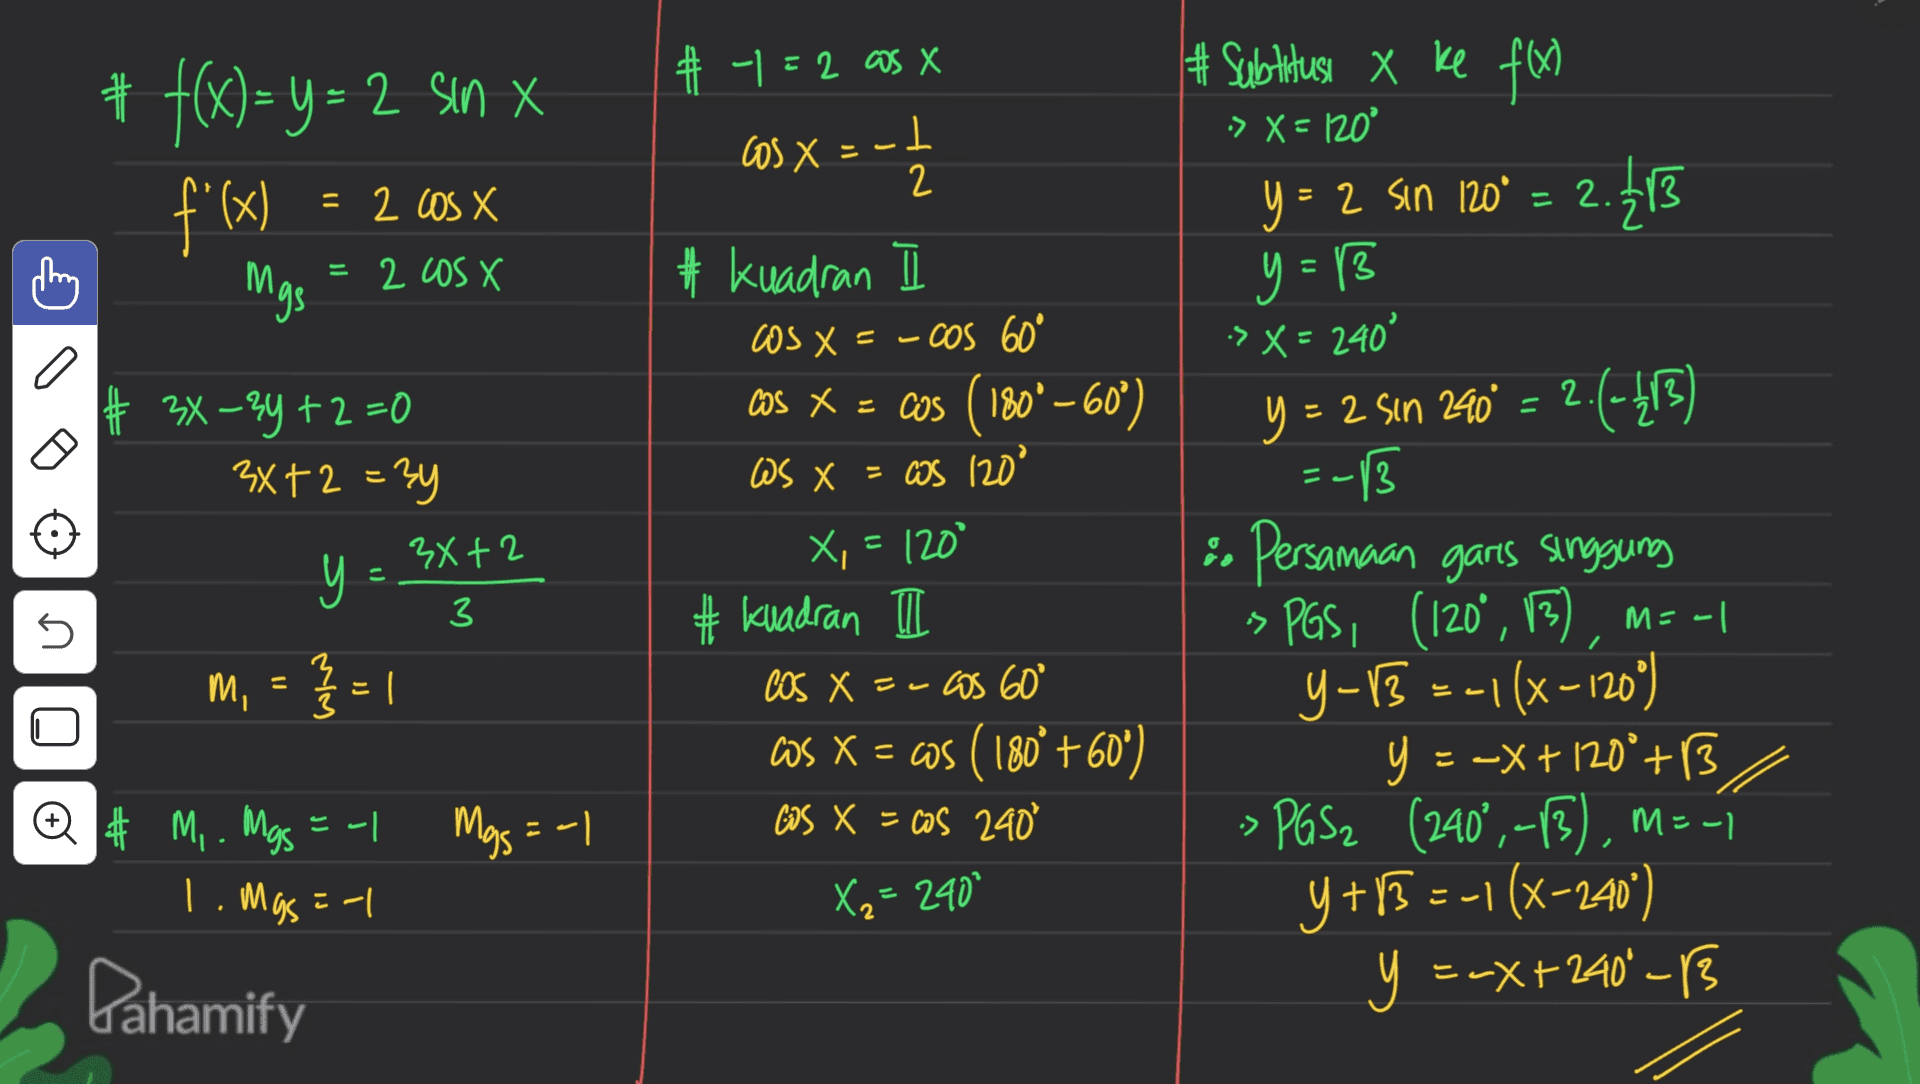 # f(x) = y = 2 sin x
f'(x) = 2 cos x
mgs = 2 cos x
# 3x - 3y + 2 = 0
3x + 2 = 3y
y = 3x + 2 / 3
m₁ = 3/3 = 1
# m₁ . mgs = -1 mgs = -1
1 . mgs = -1
# -1 = 2 cos x
cos x = -1/2
# kuadran II
cos x = - cos 60°
cos x = cos (180° - 60°)
cos x = cos 120°
x₁ = 120°
# kuadran III
cos x = - cos 60°
cos x = cos (180° + 60°)
cos x = cos 240°
x₂ = 240°
# Subtitusi x ke f(x)
-> x = 120°
y = 2 sin 120° = 2 . 1/2 √3
y = √3
-> x = 240°
y = 2 sin 240° = 2 . (-1/2 √3)
= -√3
∴ Persamaan garis singgung
-> PGS₁ (120°, √3), m = -1
y - √3 = -1 (x - 120°)
y = -x + 120° + √3 //
-> PGS₂ (240°, -√3), m = -1
y + √3 = -1 (x - 240°)
y = -x + 240° - √3
//
Pahamify